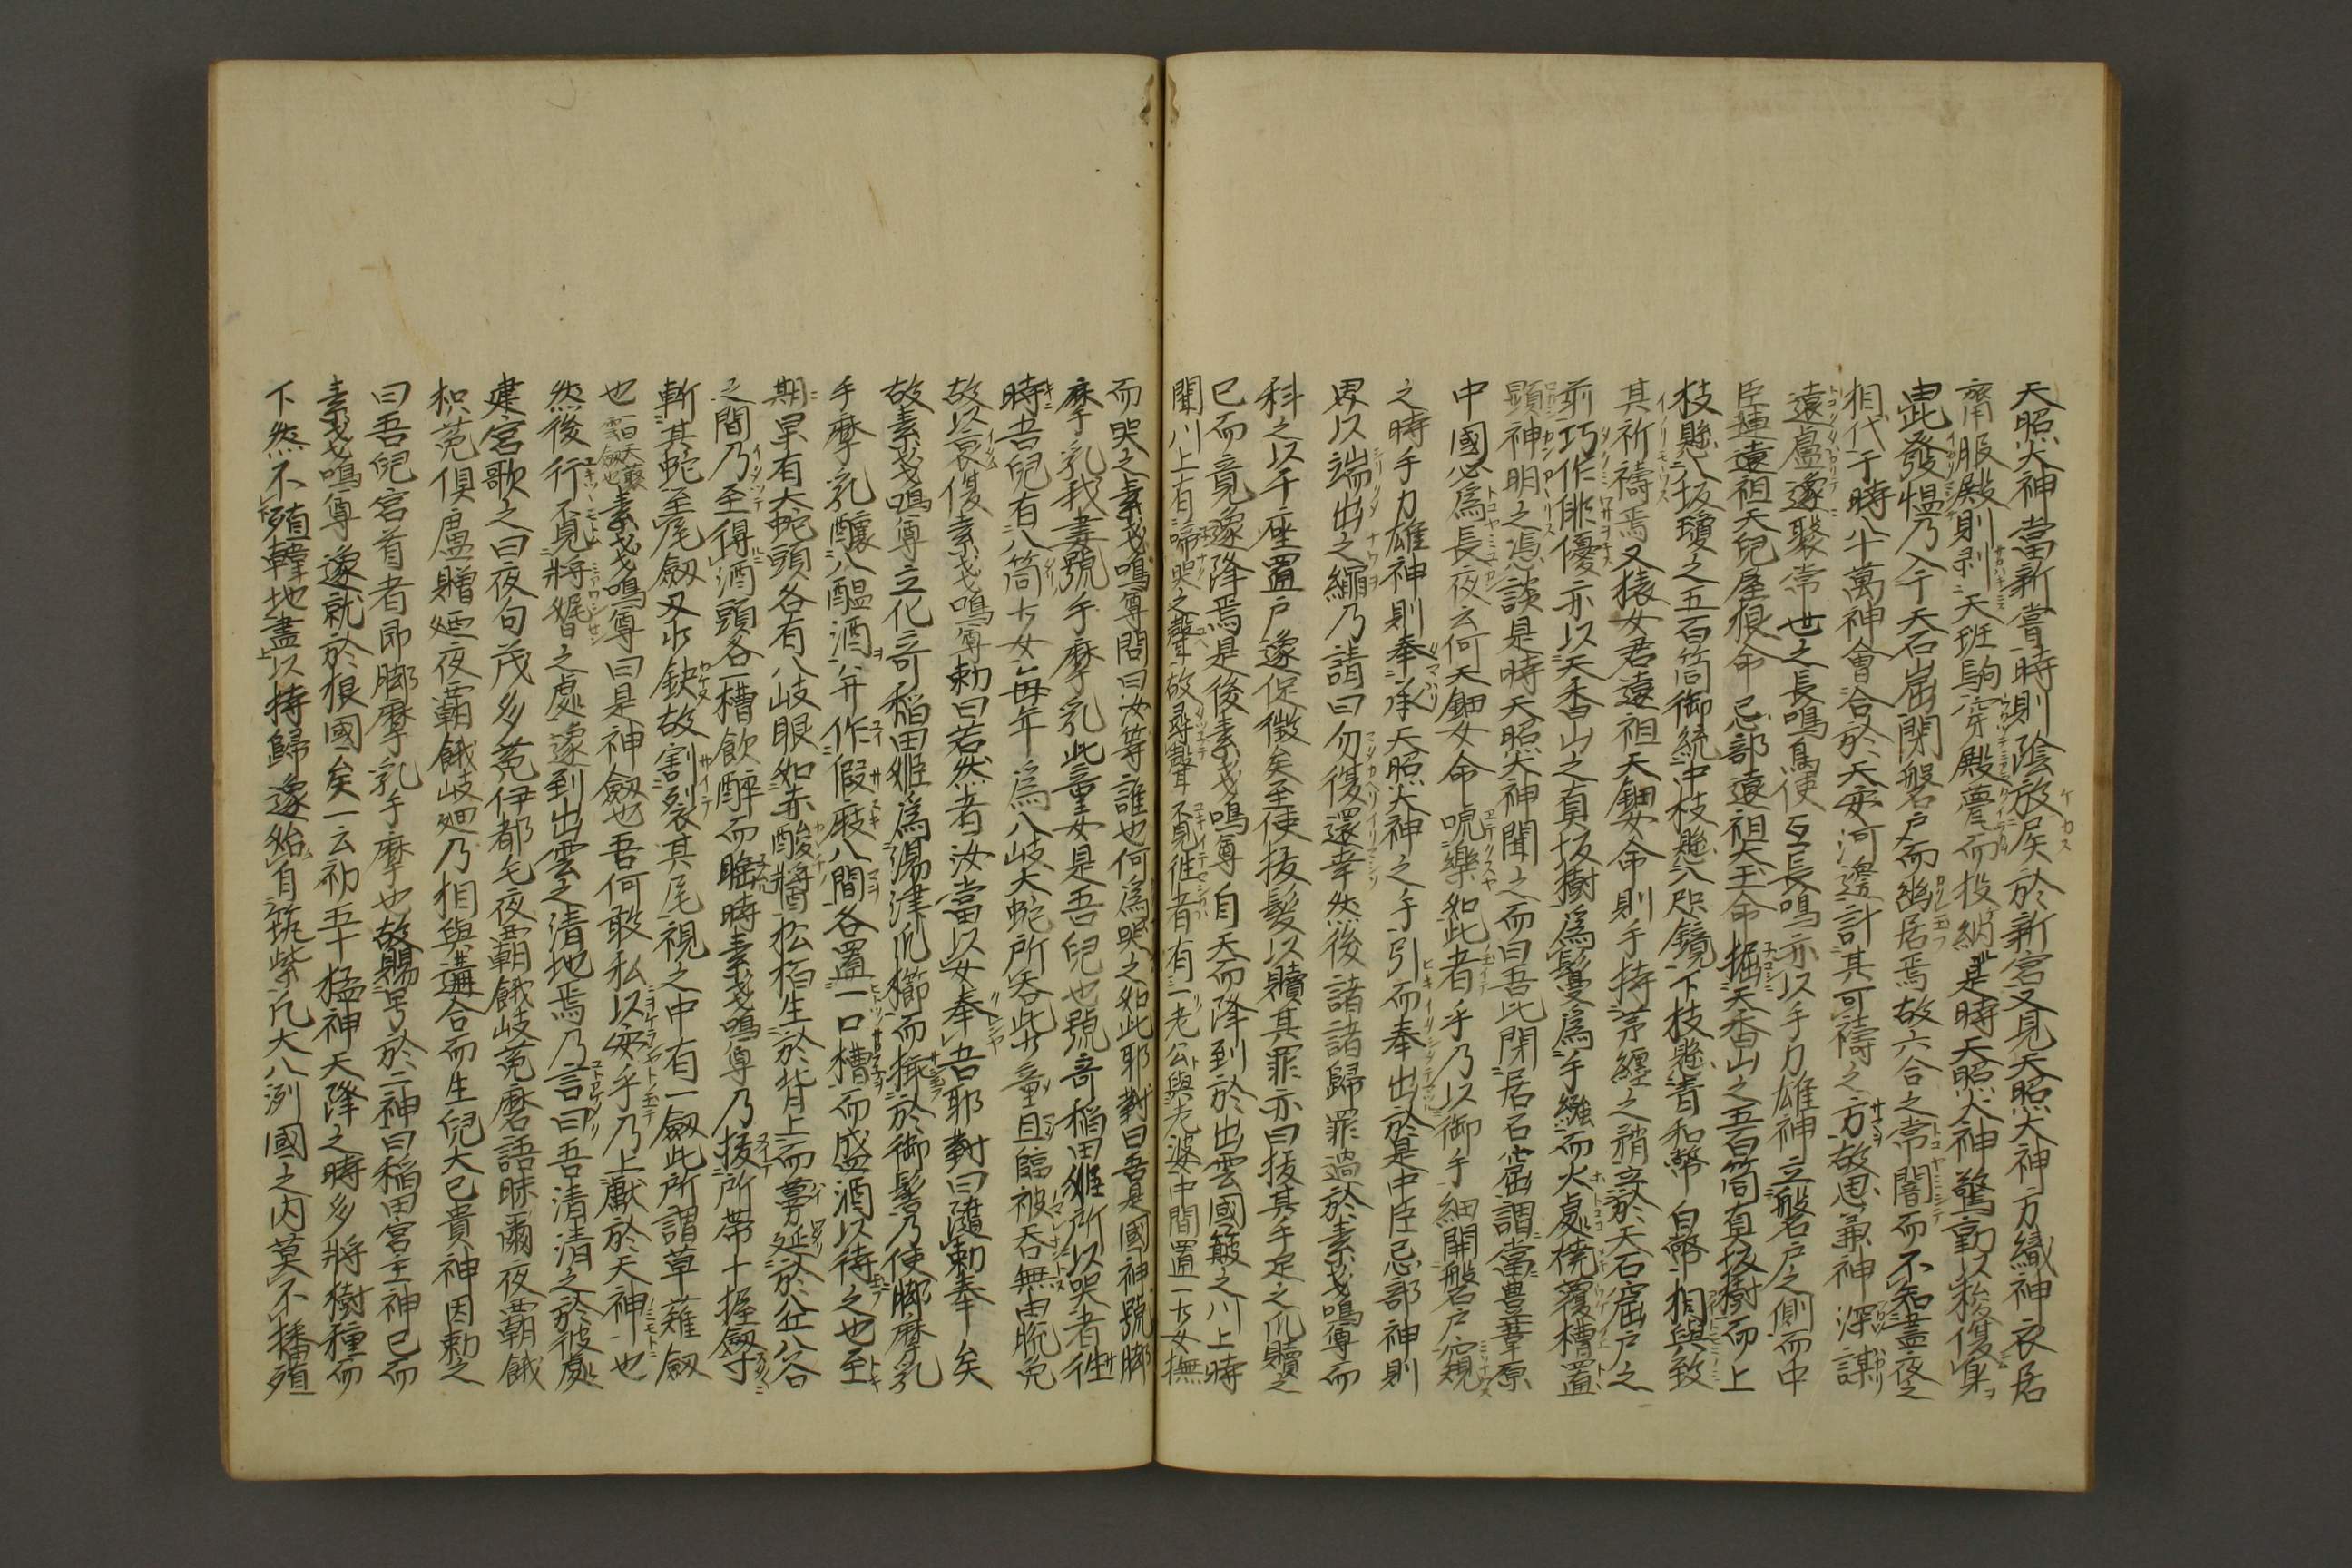 天照大神當新嘗時則陰放𡱁於新宮又見天照大神方織神衣居
齋服殿則剥天班駒穿殿甍而投納是時天照大神驚動以梭傷身
由此發愠乃入于天石窟閇磐戸而幽居焉故六合之常闇而不知晝夜之
相代于時八十萬神會合於天安河邊計其可禱之方故思兼神深謀
遠慮遂聚常世之長鳴鳥使互長鳴亦以手力雄神立磐戸之側而中
臣連遠祖天兒屋根命忌部遠祖太玉命掘天香山之五百箇真坂樹而上
枝懸八坂瓊之五百箇御統中枝懸八咫鏡下枝懸青和幣白幣相與致
其祈禱焉又猿女君遠祖天鈿女命則手持茅纏之矟立於天石窟戸之
前巧作俳優亦以天香山之真坂樹為鬘為手繦而火處焼覆槽置
顯神明之憑談是時天照大神聞之而曰吾比閇居石窟謂當豊葦原
中國必為長夜云何天鈿女命㖸樂如此者乎乃以御手細開磐戸窺
之時手力雄神則奉承天照大神之手引而奉出於是中臣忌部神則
界以端出之繩乃請曰勿復還幸然後諸諸歸罪過於素戔嗚尊而
科之以千座置戸遂促徴矣至使抜髮以贖其罪亦曰抜其手足之爪贖之
已而竟遂降焉是後素戔嗚尊自天而降到於出雲國簸之川上時
聞川上有啼哭之聲故尋聲不見徃者有一老公與老婆中間置一少女撫
而哭之素戔嗚尊問曰汝等誰也何為哭之如此耶對曰吾是國神號脚
摩乳我妻號手摩乳此童女是吾兒也號奇稻田姫所以哭者徃
時吾兒有八箇少女毎年為八岐大蛇所呑此少童且臨被呑無由脱免
故以哀傷素戔嗚尊勅曰若然者汝當以女奉吾耶對曰隨勅奉矣
故素戔嗚尊立化奇稻田姫為湯津爪櫛而插於御髻乃使脚摩乳
手摩乳釀八醞酒并作假庪八間各置一口槽而盛酒以待之也至
期果有大蛇頭各有八岐眼如赤酸醬松栢生於背上而蔓延於八丘八谷
之間乃至得酒頭各一槽飲醉而睡時素戔嗚尊乃抜所帶十握劔寸
斬其蛇至尾劔刄少缺故割裂其尾視之中有一劔此所謂草薙劔
也一曰天藂雲劔也素戔嗚尊曰是神劔也吾何敢私以安乎乃上獻於天神也
然後行覓將婚之處遂到出雲之清地焉乃言曰吾清清之於彼處
建宮歌之曰夜句茂多菟伊都毛夜覇餓岐菟磨語昧爾夜覇餓
枳菟倶盧贈廼夜覇餓岐廻乃相與遘合而生兒大己貴神因勅之
曰吾兒宮首者即脚摩乳手摩也故賜号於二神曰稻田宮主神已而
素戔嗚尊遂就於根國矣一云初五十猛神天降之時多將樹種而
下然不殖韓地盡以持歸遂始自筑紫凡大八洲國之内莫不播殖